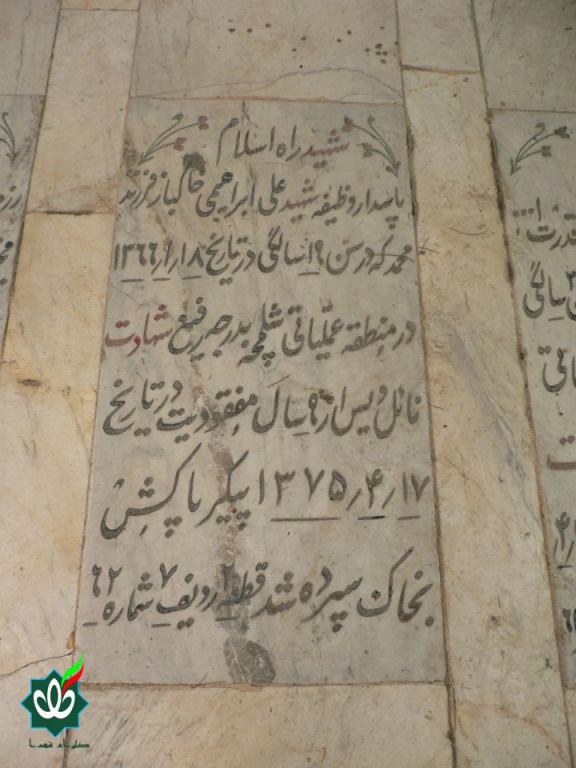 شهید راه اسلام
پاسدار وظیفه شهید علی ابراهیمی خاکباز فرزند
محمد که در سن ۱۹ سالگی در تاریخ ۱۳۶۶٫۹٫۱۸
در منطقه عملیاتی شلمچه بدرجه رفیع شهادت
نائل و پس از ۹ سال مفقودیت در تاریخ
۱۳۷۵٫۴٫۱۷ پیکر پاکش
بخاک سپرده شد قطعه ۲ ردیف ۷ شماره ۶۲
گلزار شهدا